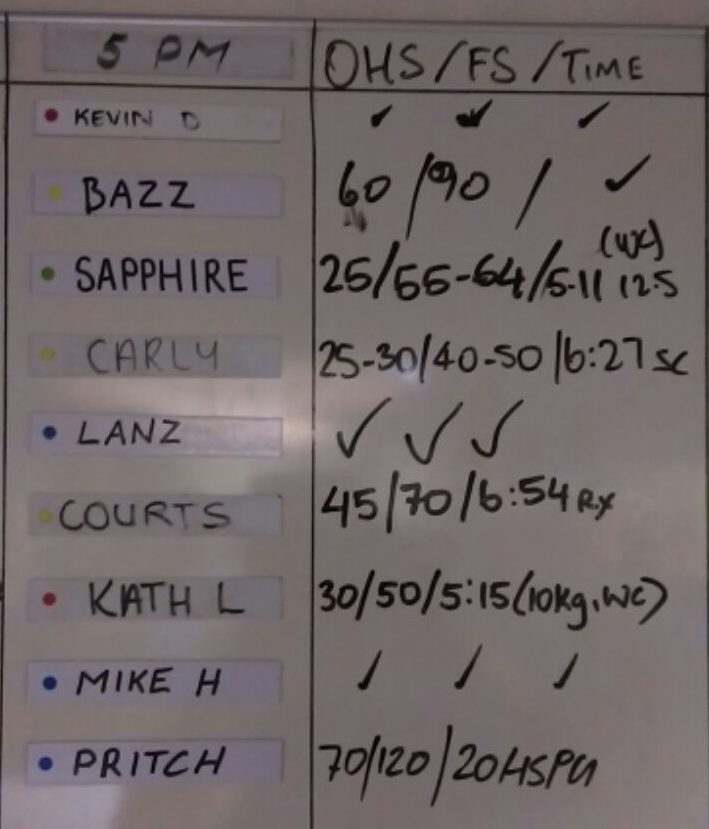 5 PM OHS/FS/TIME
KEVIN D ✓ ✓ ✓
BAZZ 60/90/ ✓
SAPPHIRE 25/55-64/5-11 12.5
CARLY 25-30/40-50/6:27 SC
LANZ ✓ ✓ ✓
COURTS 45/70/6:54 Rx
KATH L 30/50/5:15(10kg, WC)
MIKE H ✓ ✓ ✓
PRITCH 70/120/20HSPU